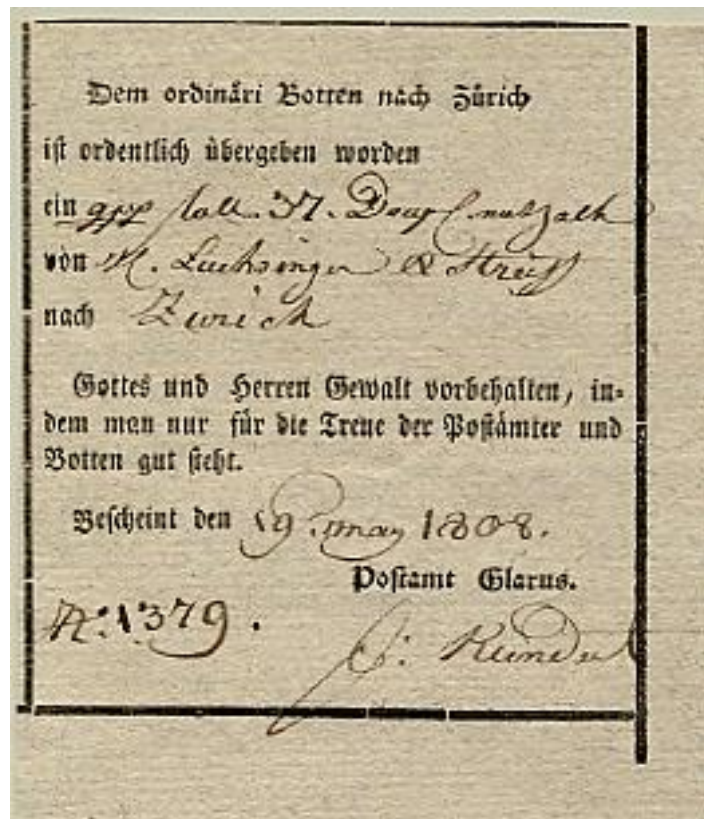 Dem ordinäri Botten nach Zürich
ist ordentlich übergeben worden
ein 37.
von M. Luchsinger & Streiff
nach Zurich
Gottes und Herren Gewalt vorbehalten, in-
dem man nur für die Treue der Postämter und
Botten gut steht.
Bescheint den 19. may 1808.
Postamt Glarus.
N: 1379.